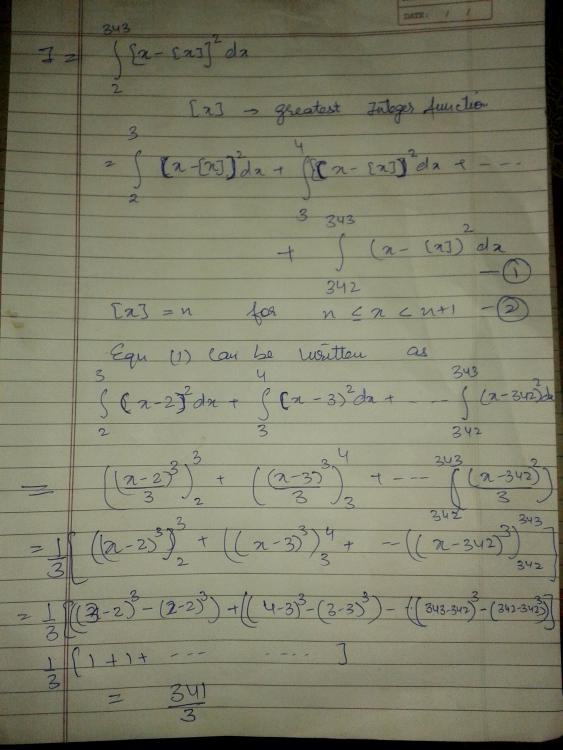 DATE: / /
I = ∫₂³⁴³ [x - [x]]² dx
[x] → greatest Integer function
= ∫₂³ [x - [x]]² dx + ∫₃⁴ [x - [x]]² dx + - - - -
+ ∫₃₄₂³⁴³ (x - [x])² dx — ①
[x] = n for n ≤ x < n+1 — ②
Equn (1) can be written as
∫₂³ (x-2)² dx + ∫₃⁴ (x-3)² dx + - - - - ∫₃₄₂³⁴³ (x-342)² dx
= ((x-2)³/3)₂³ + ((x-3)³/3)₃⁴ + - - - ∫₃₄₂³⁴³ ((x-342)³/3)
= 1/3 [((x-2)³)₂³ + ((x-3)³)₃⁴ + - -((x-342)³)₃₄₂³⁴³]
= 1/3 [((3-2)³ - (2-2)³) + ((4-3)³ - (3-3)³) - -((343-342)³ - (342-342)³)]
1/3 [1 + 1 + - - - . . . . ]
= 341/3